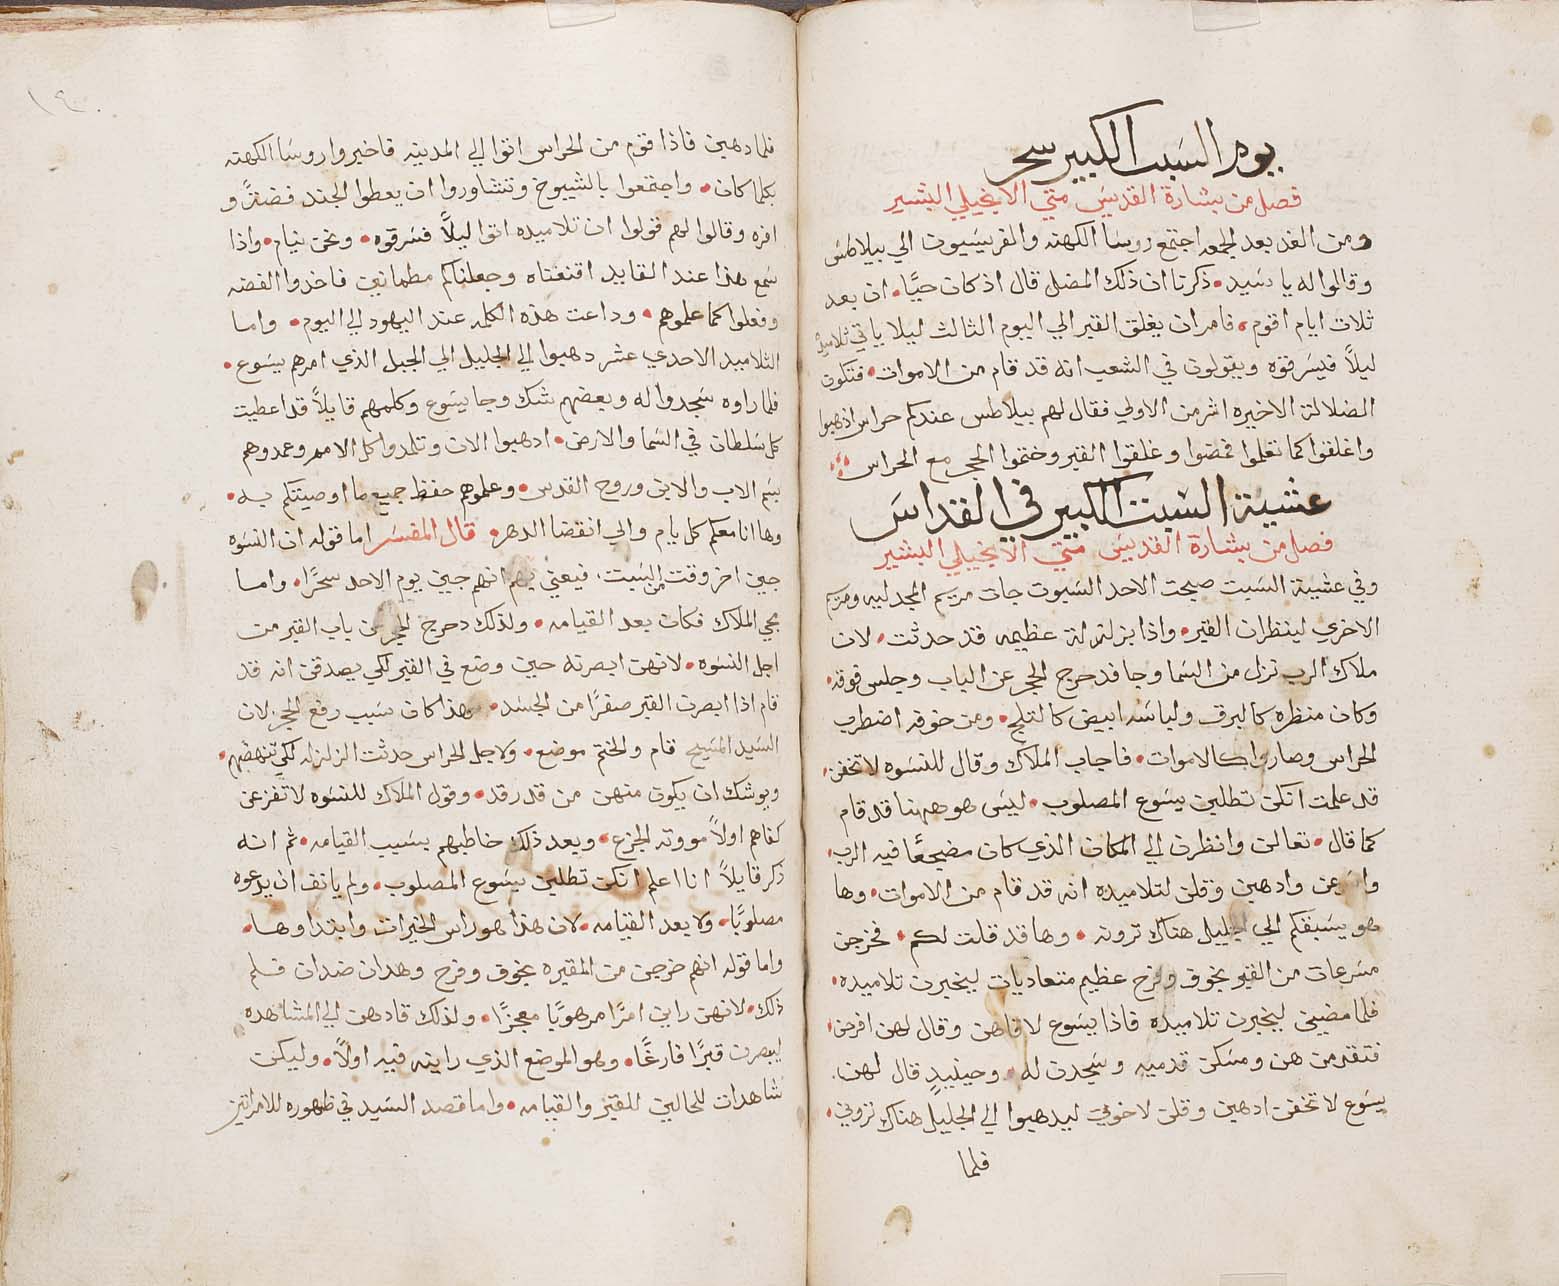 يوم السبت الكبير سحر
فصل من بشارة القديس متي الانجيلي البشير
ومن الغد بعد الجمعه اجتمع روسا الكهنه والفريسيون الي بيلاطس
وقالوا له يا سيد • ذكرنا ان ذلك المضل قال اذ كان حيًا • ان بعد
ثلاث ايام اقوم • فامر ان يغلق القبر الي اليوم الثالث ليلا ياتي تلاميذه
ليلاً فيسرقوه ويقولون في الشعب انه قد قام من الاموات • فتكون
الضلالة الاخيره اشر من الاولي فقال لهم بيلاطس عندكم حراس اذهبوا
واغلقوا كما تعلموا فمضوا وغلقوا القبر وختموا الحجر مع الحراس
عشية السبت الكبير في القداس
فصل من بشارة القديس متي الانجيلي البشير
وفي عشية السبت صبحت الاحد السيوت جات مريم المجدليه ومريم
الاخري لينظران القبر • واذا بزلزلة عظيمه قد حدثت • لان
ملاك الرب نزل من السما وجا فدحرج الحجر عن الباب وجلس فوقه •
وكان منظره كالبرق ولباسه ابيض كالثلج • ومن خوفه اضطرب
الحراس وصاروا كالاموات • فاجاب الملاك وقال للنسوه لا تخفن •
قد علمت انكن تطلبن يسوع المصلوب • ليس هو ههنا قد قام
كما قال • تعالن وانظرن الي المكان الذي كان مضجعًا فيه الرب •
واسرعن وادهبن وقلن لتلاميده انه قد قام من الاموات • وها
هو يسبقكم الي الجليل هناك ترونه • وها قد قلت لكم • فخرجن
مسرعات من القبر بخوف وفرح عظيم متعاديات ليخبرن تلاميده •
فلما مضين ليخبرن تلاميده فاذا يسوع لاقاهن وقال لهن افرحن •
فتقدمن هن ومسكن قدميه وسجدن له • وحينيدٍ قال لهن •
يسوع لا تخفن ادهبن وقلن لاخوتي ليدهبوا الي الجليل هناك تروني •
فلما
فلما دهبن فاذا قوم من الحراس اتوا الي المدينه فاخبروا روسا الكهنه
بكلما كان • واجتمعوا بالشيوخ وتشاوروا ان يعطوا الجند فضةً و
افره وقالوا لهم قولوا ان تلاميده اتوا ليلاً فسرقوه • ونحن نيام • واذا
سمع هذا عند القايد اقنعناه وجعلناكم مطمانين فاخدوا الفضه
وفعلوا كما علموهم • وداعت هذه الكلمه عند اليهود الي اليوم • واما
التلاميد الاحدي عشر دهبوا الي الجليل الي الجبل الذي امرهم يسوع •
فلما راوه سجدوا له وبعضهم شك وجا يسوع وكلمهم قايلاً قد اعطيت
كل سلطان في السما والارض • ادهبوا الان وتلمدوا كل الامم وعمدوهم
بسم الاب والابن وروح القدس • وعلموهم حفظ جميع ما اوصيتكم به •
وها انا معكم كل يام والي انقضا الدهر • قال المفسر اما قوله ان النسوه
جين اخر وقت السبت • فيعني بهم انهم جين يوم الاحد سحرًا • واما
مجي الملاك فكان بعد القيامه • ولذلك دحرج الحجر عن باب القبر من
اجل النسوه • لانهن ابصرنه حين وضع في القبر لكي يصدقن انه قد
قام اذا ابصرن القبر صفرًا من الجسد • فهذا كان سبب رفع الحجر لان
السيد المسيح قام والختم موضع • ولاجل الحراس حدثت الزلزله لكي تنهضهم •
ويوشك ان يكون منهن من قد رقد • وقول الملاك للنسوه لا تفزعن
كفاهم اولاً موونه الجزع • وبعد ذلك خاطبهم بسبب القيامه • ثم انه
ذكر قايلاً انا اعلم انكن تطلبن يسوع المصلوب • ولم يانف ان يدعوه
مصلوبًا • ولا بعد القيامه • لان هذا هو راس الخيرات وابتداوها •
واما قوله انهم خرجن من المقبره بخوف وفرح وهدان ضدان فلم
ذلك • لانهن راين امرًا مرهوبًا معجزًا • ولذلك قادهن الي المشاهده
ليبصرن قبرًا فارغًا • وهو الموضع الذي راينه فيه اولاً • وليكن
شاهدات للحالين للقبر والقيامه • واما قصد السيد في ظهوره للامراتين